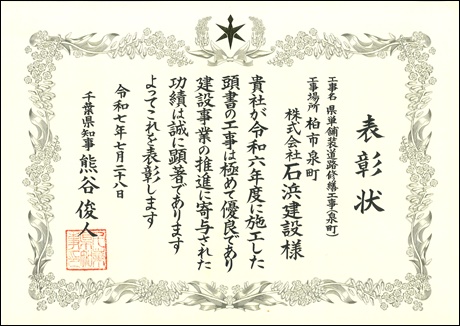 表彰状
工事名 県単舗装道路修繕工事(泉町)
工事場所 柏市泉町
株式会社石浜建設様
貴社が令和六年度に施工した
頭書の工事は極めて優良であり
建設事業の推進に寄与された
功績は誠に顕著であります
よってこれを表彰します
令和七年七月二十八日
千葉県知事 熊谷俊人